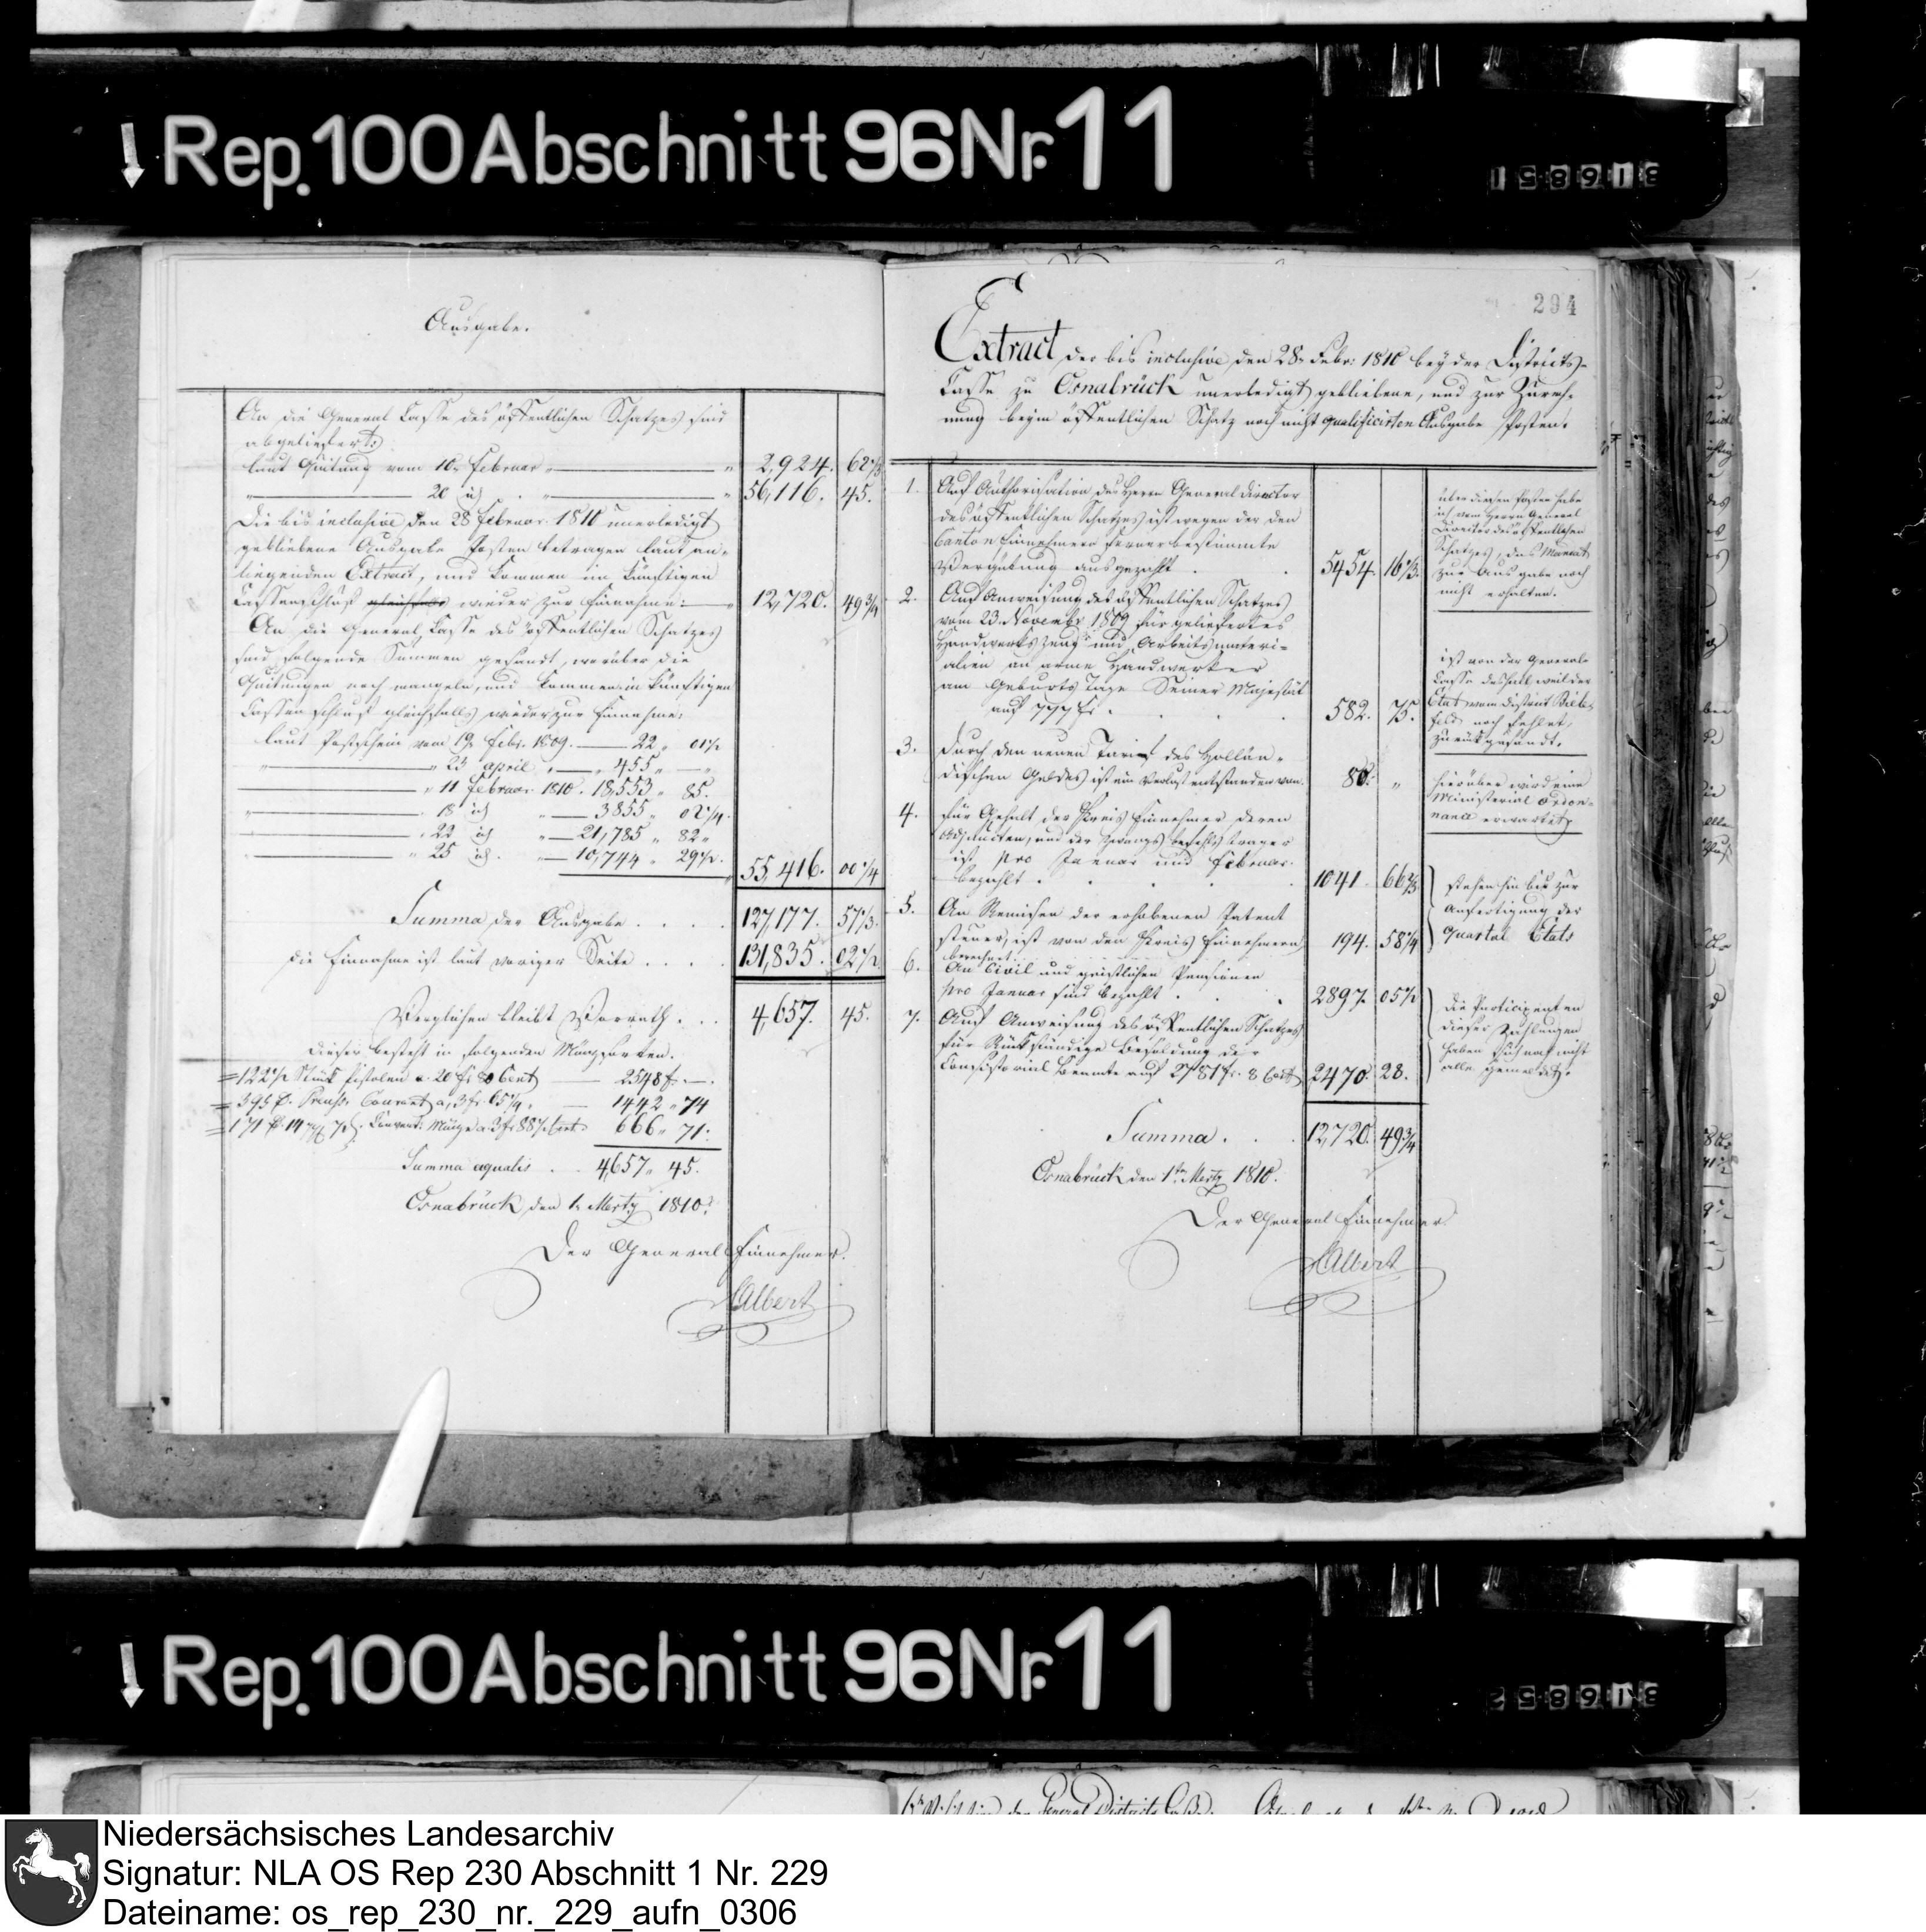 Rep. 100 Abschnitt 96 Nr. 11
316851
Ausgabe.
An die General Casse des öffentlichen Schatzes sind
abgeliefert:
laut Quitung vom 10. Februar " 2,924. 62 1/3
" 20 id. " 56,116. 45.
Die bis inclusive den 28 Februar 1810 unerledigt
gebliebene Ausgabe Posten betragen laut an-
liegenden Extract, und kommen im künftigen
Cassenschluß gleichfalls wieder zur Einnahme: 12,720. 49 3/4
An die General Casse des öffentlichen Schatzes
sind folgende Summen gesandt, worüber die
Quitungen noch mangeln, und kommen in künftigen
Cassenschluß gleichfalls wieder zur Einnahme:
laut Postschein vom 19 Febr. 1809. 22 " 01 1/2
" 23 April " 455 " — "
" 11 Februar 1810. 18,553 " 85.
" 18 id " 3855 " 02 1/4.
" 22 id " 21,785 " 82 "
" 25 id. " 10,744 " 29 1/2.
55,416. 00 1/4
Summa der Ausgabe . . . . 127,177. 57 1/3.
die Einnahme ist laut voriger Seite . . . . 131,835. 02 1/2
Verglichen bleibt Vorrath . . . 4,657. 45.
dieser besteht in folgenden Münzsorten.
= 122 1/2 Stück Pistolen a 20 fr 80 Cent — 2548 f. —.
= 395 Preuss. Courant a 3 fr 65 1/4 — 1442 " 74
= 171 14 7 Convent: Münze a 3 fr 88 Cent. 666 " 71.
Summa aequalis . . 4657 " 45.
Osnabrück den 1. Mertz 1810.
Der General Einnehmer.
Albert
294
Extract der bis inclusive den 28. Febr: 1810 bey der Districts-
Casse zu Osnabrück unerledigt gebliebene, und zur Zurech-
nung beym öffentlichen Schatz noch nicht qualificirten Ausgabe Posten.
1. Auf Authorisation des Herrn General Director
des öffentlichen Schatzes ist wegen der den
Canton Einnehmern ferner bestimmte
Vergütung ausgezahlt . . 5454. 16 1/3.
über diesen Posten habe
ich vom Herrn General
Director des öffentlichen
Schatzes, das Mandat
zur Ausgabe noch
nicht erhalten.
2. Auf Anweisung des öffentlichen Schatzes
vom 23. Novembr 1809 für geliefertes
Handwerks Zeug und Arbeitsmateri-
alien an arme Handwerker
am Geburts Tage Seiner Majestät
auf 777 fr. . . . 582. 75.
ist von der General-
Casse deshalb weil der
Etat vom District Biele-
feld noch fehlet,
zurückgesandt.
3. Durch den neuen Tarif des Hollän-
dischen Geldes ist ein Verlust entstanden von 80. "
hierüber wird eine
Ministerial Ordon-
nance erwartet
4. für Gehalt der Kreis Einnehmer deren
Adjuncten, und der Zwangsbefehls träger
ist pro Januar und Februar.
bezahlt . . . 1041. 66 2/3
stehen hin bis zur
Anfertigung der
Quartal Etats
5. An Remisen der erhobenen Patent
steuer, ist von den Kreis Einnehmern
berechnet . . 194. 58 1/4
6. An Civil und geistlichen Pensionen
pro Januar sind bezahlt . . 2897. 05 1/2
die Participenten
dieser Zahlungen
haben sich noch nicht
alle gemeldet.
7. Auf Anweisung des öffentlichen Schatzes
für Rückständige Besoldung der
Consistorial Beamte auf 2781 fr. 8 Cent 2470. 28.
Summa . . . 12,720. 49 3/4
Osnabrück den 1ten Mertz 1810.
Der General Einnehmer
Albert
Rep. 100 Abschnitt 96 Nr. 11
316852
Niedersächsisches Landesarchiv
Signatur: NLA OS Rep 230 Abschnitt 1 Nr. 229
Dateiname: os_rep_230_nr._229_aufn_0306